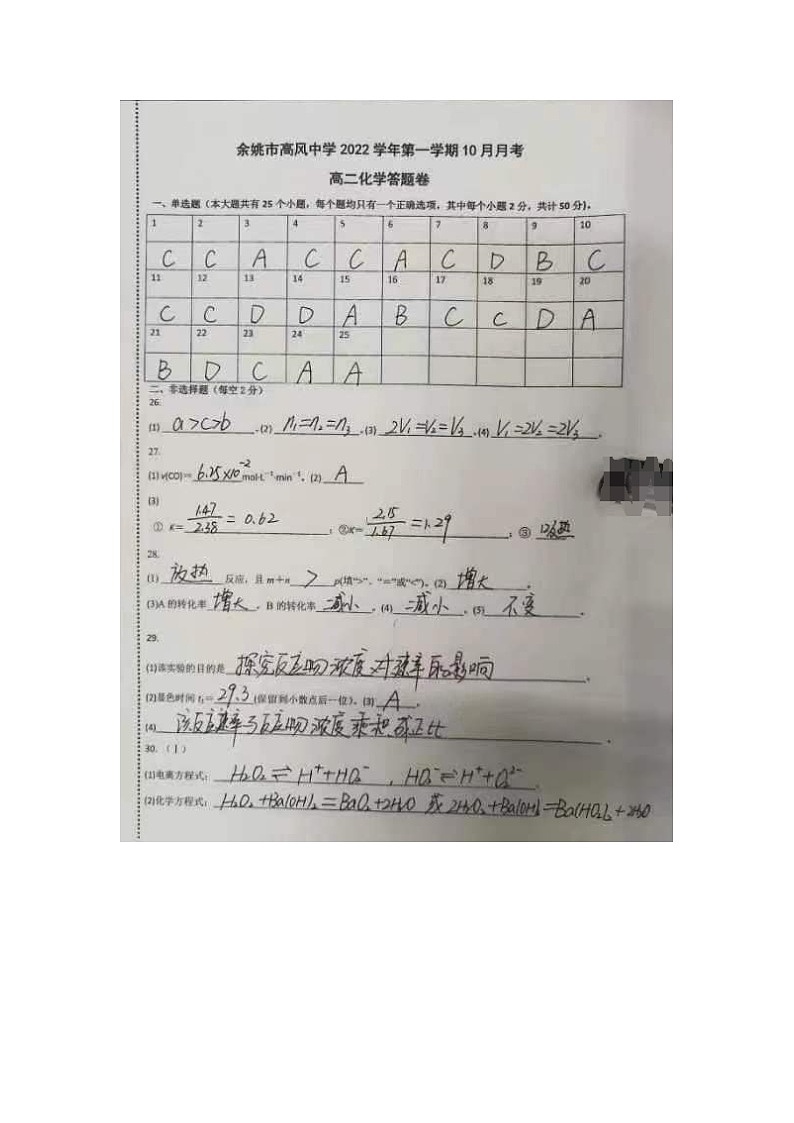 余姚市高风中学 2022 学年第一学期 10 月月考
高二化学答题卷
一、单选题（本大题共有 25 个小题，每个题均只有一个正确选项，其中每个小题 2 分，共计 50 分)。
1 2 3 4 5 6 7 8 9 10
C C A C C A C D B C
11 12 13 14 15 16 17 18 19 20
C C D D A B C C D A
21 22 23 24 25
B D C A A
二、非选择题（每空 2 分）
26.
(1) a>c>b 。(2) n₁=n₂=n₃ 。(3) 2V₁=V₂=V₃ 。(4) V₁=2V₂=2V₃ 。
27.
(1) v(CO)= 6.25×10⁻² mol·L⁻¹·min⁻¹。(2) A
(3)
① K= 1.47/2.38 = 0.62 ；②K= 2.15/1.67 =1.29 ；③ 吸热
28.
(1) 放热 反应，且 m+n > p(填“>”、“=”或“<”)。(2) 增大 。
(3)A 的转化率 增大 ，B 的转化率 减小 。(4) 减小 。(5) 不变 。
29.
(1)该实验的目的是 探究反应物浓度对速率的影响 。
(2)显色时间 t₁= 29.3 (保留到小数点后一位)。(3) A 。
(4) 该反应速率与反应物浓度乘积成正比 。
30. （Ⅰ）
(1)电离方程式： H₂O₂⇌H⁺+HO₂⁻ ，HO₂⁻⇌H⁺+O₂²⁻
(2)化学方程式： H₂O₂+Ba(OH)₂=BaO₂+2H₂O 或 2H₂O₂+Ba(OH)₂=Ba(HO₂)₂+2H₂O